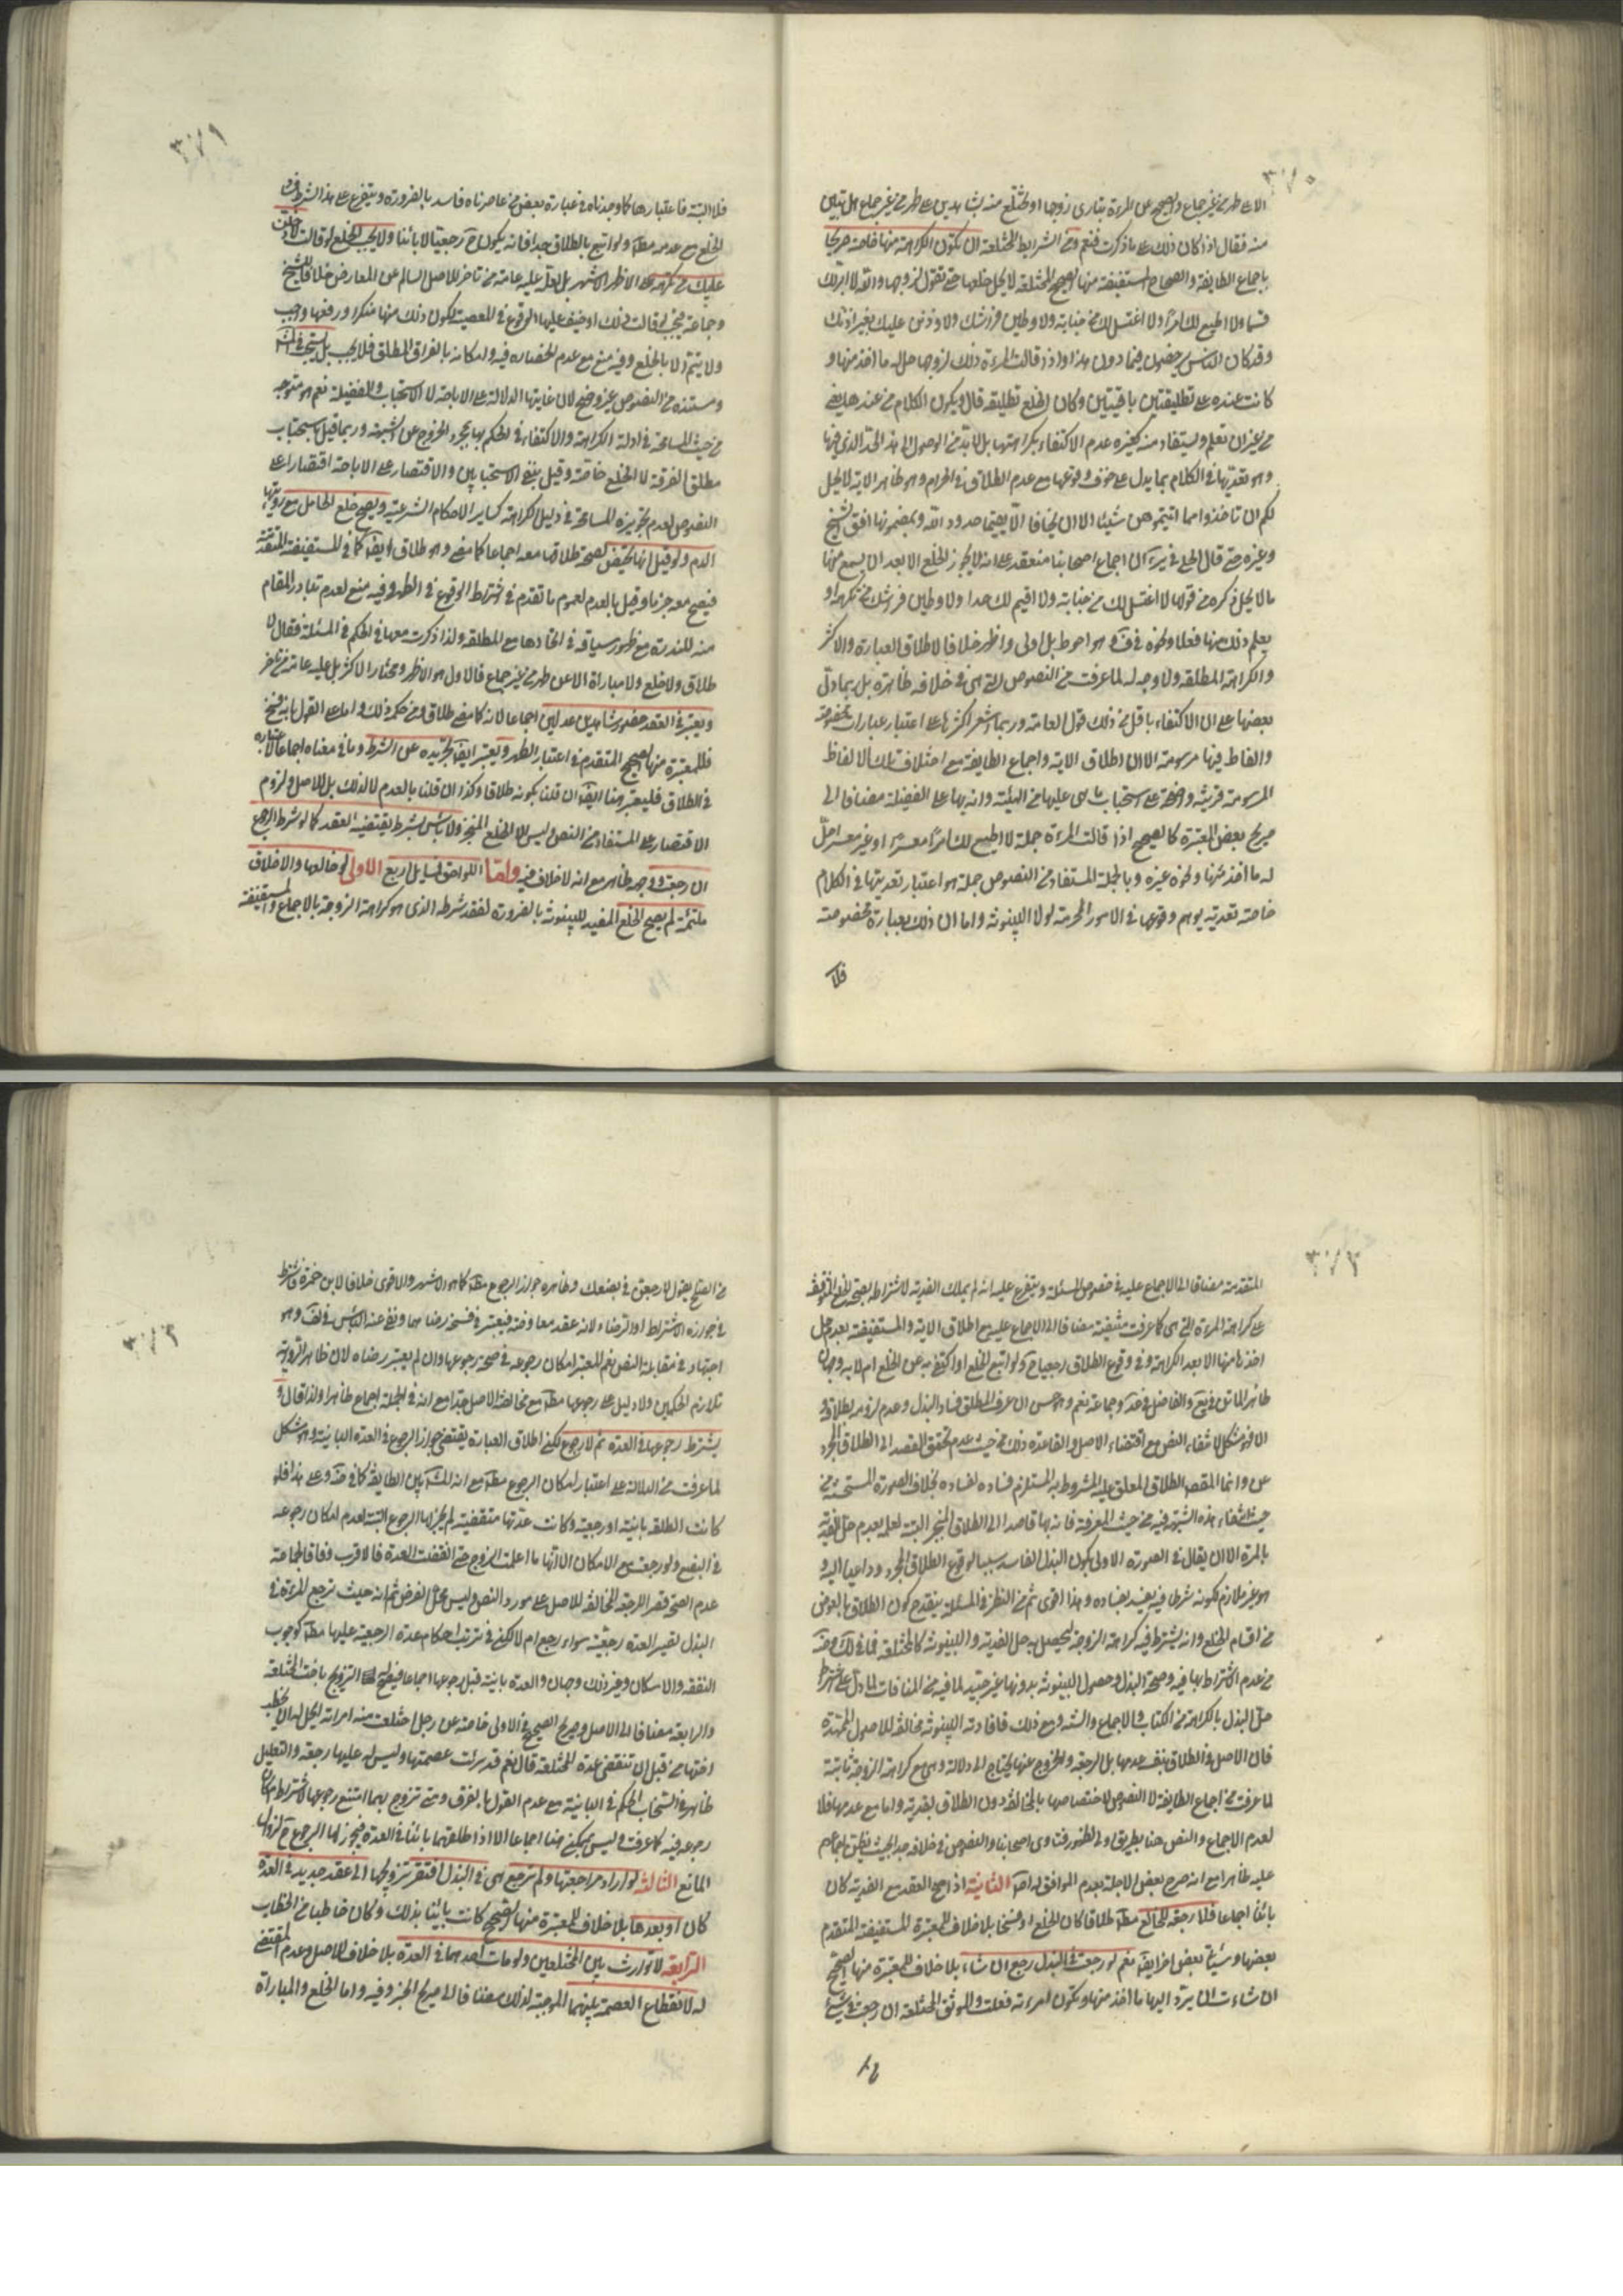 ٣٧٥
الا على طهر من غير جماع والصحيح عن المرءة تباری زوجها او تختلع منه بشاهدين على طهر من غير جماع هل تبين
منه فقال اذا كان ذلك على ما ذكرت فنعم ومن الشرايط للمختلعة ان يكون الكراهة منها خاصة صريحا
باجماع الطايفة والصحاح المستفيضة منها الصحيح المختلعة لا يحل خلعها حتى تقول لزوجها والله لا ابر لك
قسما ولا اطيع لك امرا ولا اغتسل لك من جنابة ولاوطين فراشك ولاوذنن عليك بغير اذنك
وقد كان الناس يرخصون فيما دون هذا واذا قالت المرءة ذلك لزوجها حل له ما اخذ منها و
كانت عنده على تطليقتين باقيتين وكان الخلع تطليقة قال ويكون الكلام من عندها يعنى
من غير ان تعلم ويستفاد منه كغيره عدم الاكتفاء بكراهتها بل لا بد من الوصول الى هذا الحد الذى فيها
وهو تعديتها فى الكلام بما يدل على خوف وقوعها مع عدم الطلاق فى الحرام وهو ظاهر الاية لا يحل
لكم ان تاخذوا مما اتيتموهن شيئا الا ان يخافا الا يقيما حدود الله وبمضمونها افتى الشيخ
وغيره حتى قال الحلى فى ئر ان اجماع اصحابنا منعقد على انه لا يجوز الخلع الا بعد ان يسمع منها
ما لا يحل ذكره من قولها لا اغتسل لك من جنابة ولا اقيم لك حدا ولاوطين فراشك من تكرهه او
يعلم ذلك منها فعلا ونحوه فى ف وهو احوط بل اولى واظهر خلافا لاطلاق العبارة والاكثر
والكراهة المطلقة ولا وجه له لما عرفت من النصوص التى هى فى خلافه ظاهرة بل ربما دل
بعضها على ان الاكتفاء باقل من ذلك قول العامة وربما اشعر اكثرها على اعتبار عبارات مخصوصة
والفاظ فيها مرسومة الا ان اطلاق الاية واجماع الطايفة مع اختلاف تلك الالفاظ
المرسومة قرينة واضحة على استحباب ما هى عليها من الهيئة وانه بها على الفضيلة مضافا الى
صريح بعض المعتبرة كالصحيح اذا قالت المرءة جملة لا اطيع لك امرا مفسرا او غير مفسر حل
له ما اخذ منها ونحوه غيره وبالجملة المستفاد من النصوص جملة هو اعتبار تعديتها فى الكلام
خاصة تعدية يوهم وقوعها فى الامور المحرمة لولا البينونة واما ان ذلك بعبارة مخصوصة
فلا
٣٧١
فلا البتة فاعتبارها كما وجدناه فى عبارة بعض من عاصرناه فاسد بالضرورة ويتفرع على هذا الشرط
الخلع مع عدمه مطلقا ولو اتبع بالطلاق جدا فانه يكون ح رجعيا لا بائنا ولا يجب الخلع لو قالت لادخلن
عليك من تكرهه على الاظهر الاشهر بل لعله عليه عامة من تاخر للاصل السالم عن المعارض خلافا للشيخ
وجماعة فيجب لو قالت ذلك او خيف عليها الوقوع فى المعصية لكون ذلك منها منكرا ورفعها واجب
ولا يتم الا بالخلع وفيه منع مع عدم انحصاره فيه وامكانه بالفراق المطلق فلا يجب بل يستحب
ومستنده من النصوص غير واضح لان غايتها الدلالة على الاباحة لا الاستحباب والفضيلة نعم هو متوجه
من حيث المسامحة فى ادلة الكراهة والاكتفاء فى الحكم بها بمجرد الخروج عن الشبهة وربما قيل باستحباب
مطلق الفرقة لا الخلع خاصة وقيل بنفى الاستحبابين والاقتصار على الاباحة اقتصارا على
النصوص لعدم تجويزه المسامحة فى دليل الكراهة كساير الاحكام الشرعية ويصح خلع الحامل مع رويتها
الدم ولو قيل انها تحيض لصحة طلاقها معه اجماعا كما مضى وهو طلاق ايضا كما فى المستفيضة المتقدمة
فيصح معه جزما وقيل بالعدم لعموم ما تقدم فى اشتراط الوقوع فى الطهر وفيه منع لعدم تبادر المقام
منه للندرة مع ظهور سياقه فى اتحادها مع المطلقة ولذا ذكرت معها فى الحكم فى المسئلة فقال لا
طلاق ولا خلع ولا مباراة الا عن طهر من غير جماع فالاول هو الاظهر ومختار الاكثر بل عليه عامة من تاخر
ويعتبر فى العقد حضور شاهدين عدلين اجماعا لانه كما مضى طلاق ومن حكمه ذلك واما على القول بانه فسخ
فللمعتبرة منها الصحيح المتقدم فى اعتبار الطهر ويعتبر ايضا تجريده عن الشرط وما فى معناه اجماعا
فى الطلاق فليعتبر هنا ايضا ان قلنا بكونه طلاقا وكذا ان قلنا بالعدم لا لذلك بل للاصل ولزوم
الاقتصار على المستفاد من النص وليس الا الخلع المنجز ولا باس بشرط يقتضيه العقد كما لو شرط الرجوع
ان رجعت ووجهه ظاهر مع انه لا خلاف فيه واما اللواحق فمسايل اربع الاولى لو خالعها والاخلاق
ملتئمة لم يصح الخلع المفيد للبينونة بالضرورة لفقد شرطه الذى هو كراهة الزوجة بالاجماع والمستفيضة
٣٧٢
المتقدمة مضافا الى الاجماع عليه فى خصوص المسئلة ويتفرع عليه انه لم يملك الفدية لاشتراطه بصحة الخلع المتوقفة
على كراهة المرءة التى هى كما عرفت منتفية مضافا الى الاجماع عليه مع اطلاق الاية والمستفيضة بعدم حل
اخذها منها الا بعد الكراهة وفى وقوع الطلاق رجعيا ح لو اتبع الخلع او اكتفى به عن الخلع ام لا به وجهان
ظاهر الماتن فى يع والفاضل فى عد وجماعة نعم وهو حسن ان عرف المطلق فساد البذل وعدم لزومه بطلاقه و
الا فهو مشكل لانتفاء النص مع اقتضاء الاصل والقاعدة ذلك من حيث عدم تحقق القصد الى الطلاق المجرد
عن وانما المقصود الطلاق المعلق عليه المشروط به المستلزم فساده لفساده بخلاف الصورة المستحسنة من
حيث انتفاء هذه الشبهة فيه من حيث المعرفة فانه بها قاصد الى الطلاق المنجز البتة لعلمه بعدم حل الفدية
بالمرة الا ان يقال فى الصورة الاولى بكون البذل الفاسد سببا لوقوع الطلاق المجرد وداعيا اليه و
هو غير ملازم لكونه شرطا فيه يفسد بفساده وهذا اقوى ثم من النظر فى المسئلة ينقدح كون الطلاق بالعوض
من اقسام الخلع وانه يشترط فيه كراهة الزوجة ليحصل به حل الفدية والبينونة كالمختلعة فما فى لك وضه
من عدم اشتراطها فيه وصحة البذل وحصول البينونة بدونها غير جيد لما فيه من المنافات لما دل على شرط
حل البذل بالكراهة من الكتاب والاجماع والسنة ومع ذلك فافادته البينونة مخالفة للاصول الممهدة
فان الاصل فى الطلاق بنفسه عدمها بل الرجعة والخروج عنها يحتاج الى دلالة وهى مع كراهة الزوجة ثابتة
لما عرفت من اجماع الطايفة لا النصوص لاختصاصها بالمخالفة دون الطلاق بفدية واما مع عدمها فلا
لعدم الاجماع والنص هنا بطريق اولى لظهور فتاوى اصحابنا والنصوص فى خلافه جدا بحيث يظن اجماعهم
عليه ظاهرا مع انه صرح بعض الاجلة بعدم الموافق له اصلا الثانية اذا صح العقد مع الفدية كان
بائنا اجماعا فلا رجعة للخالع مطلقا طلاقا كان الخلع او فسخا بلا خلاف للمعتبرة المستفيضة المتقدم
بعضها وسيأتى بعض اخر ايضا نعم لو رجعت فى البذل رجع ان شاء بلا خلاف للمعتبرة منها الصحيح
ان شاءت ان يرد اليها ما اخذ منها وتكون امرءته فعلت والموثق المختلعة ان رجعت فى شىء
٣٧٣
من الصلح يقول لارجعن فى بضعك وظاهره جواز الرجوع مطلقا كما هو الاشهر والاقوى خلافا لابن حمزة فاشترط
فى جوازه الاشتراط او التراضى لانه عقد معاوضة فيعتبر فى فسخه رضاهما ونفى عنه الباس فى لف وهو
اجتهاد فى مقابلة النص نعم المعتبر امكان رجوعه فى صحة رجوعها وان لم يعتبر رضاه لان ظاهر الرواية
تلازم الحكمين ولا دليل على رجوعها مطلقا مع مخالفة الاصل جدا مع انه فى الجملة اجماع ظاهرا ولذا قال و
يشترط رجوعها فى العدة ثم لا رجوع لكن اطلاق العبارة يقتضى جواز الرجوع فى العدة البائنة وهو مشكل
لما عرفت من الدلالة على اعتبار امكان الرجوع مطلقا مع انه المشهور بين الطايفة كما فى ضه وعلى هذا فلو
كانت الطلقة بائنة او رجعية وكانت عدتها منقضية لم يجز لها الرجوع البتة لعدم امكان رجوعه
فى البضع ولو رجعت مع الامكان الا انها ما اعلمت الزوج حتى انقضت العدة فالاقرب وفاقا لجماعة
عدم الصحة قصرا للرجعة المخالفة للاصل على مورد النص وليس محل الفرض ثم انه حيث ترجع المرءة فى
البذل تصير العدة رجعية سواء رجع ام لا لكن فى ترتب احكام عدة الرجعية عليها مطلقا كوجوب
النفقة والاسكان وغير ذلك وجهان والعدة بائنة قبل رجوعها اجماعا فيصح التزويج باخت المختلعة
والرابعة مضافا الى الاصل وصريح الصحيح فى الاولى خاصة عن رجل اختلعت منه امراته ايحل له ان يخطب
اختها من قبل ان تنقضى عدة المختلعة قال نعم قد برئت عصمتها وليس له عليها رجعة والتعليل
ظاهر فى انسحاب الحكم فى الثانية مع عدم القول بالفرق ومتى تزوج بهما امتنع رجوعها لاشتراط امكان
رجوعه فيه كما عرفت وليس يمكن هنا اجماعا الا اذا طلقهما بائنا فى العدة فيجوز لها الرجوع ح لزوال
المانع الثالثة لو اراد مراجعتها ولم ترجع هى فى البذل افتقر تزويجها الى عقد جديد فى العدة
كان او بعدها بلا خلاف للمعتبرة منها الصحيح كانت بائنا بذلك وكان خاطبا من الخطاب
الرابعة لا توارث بين المختلعين ولو مات احدهما فى العدة بلا خلاف للاصل وعدم المقتضى
له لانقطاع العصمة بينهما الموجبة لذلك مضافا الى صريح الخبر وفيه واما الخلع والمباراة